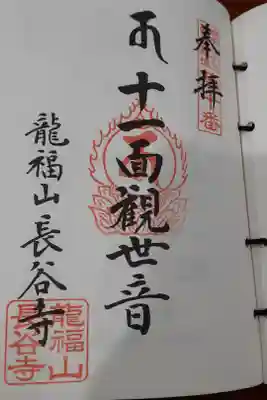 奉拝
十一面觀世音
龍福山長谷寺
龍福山
長谷寺